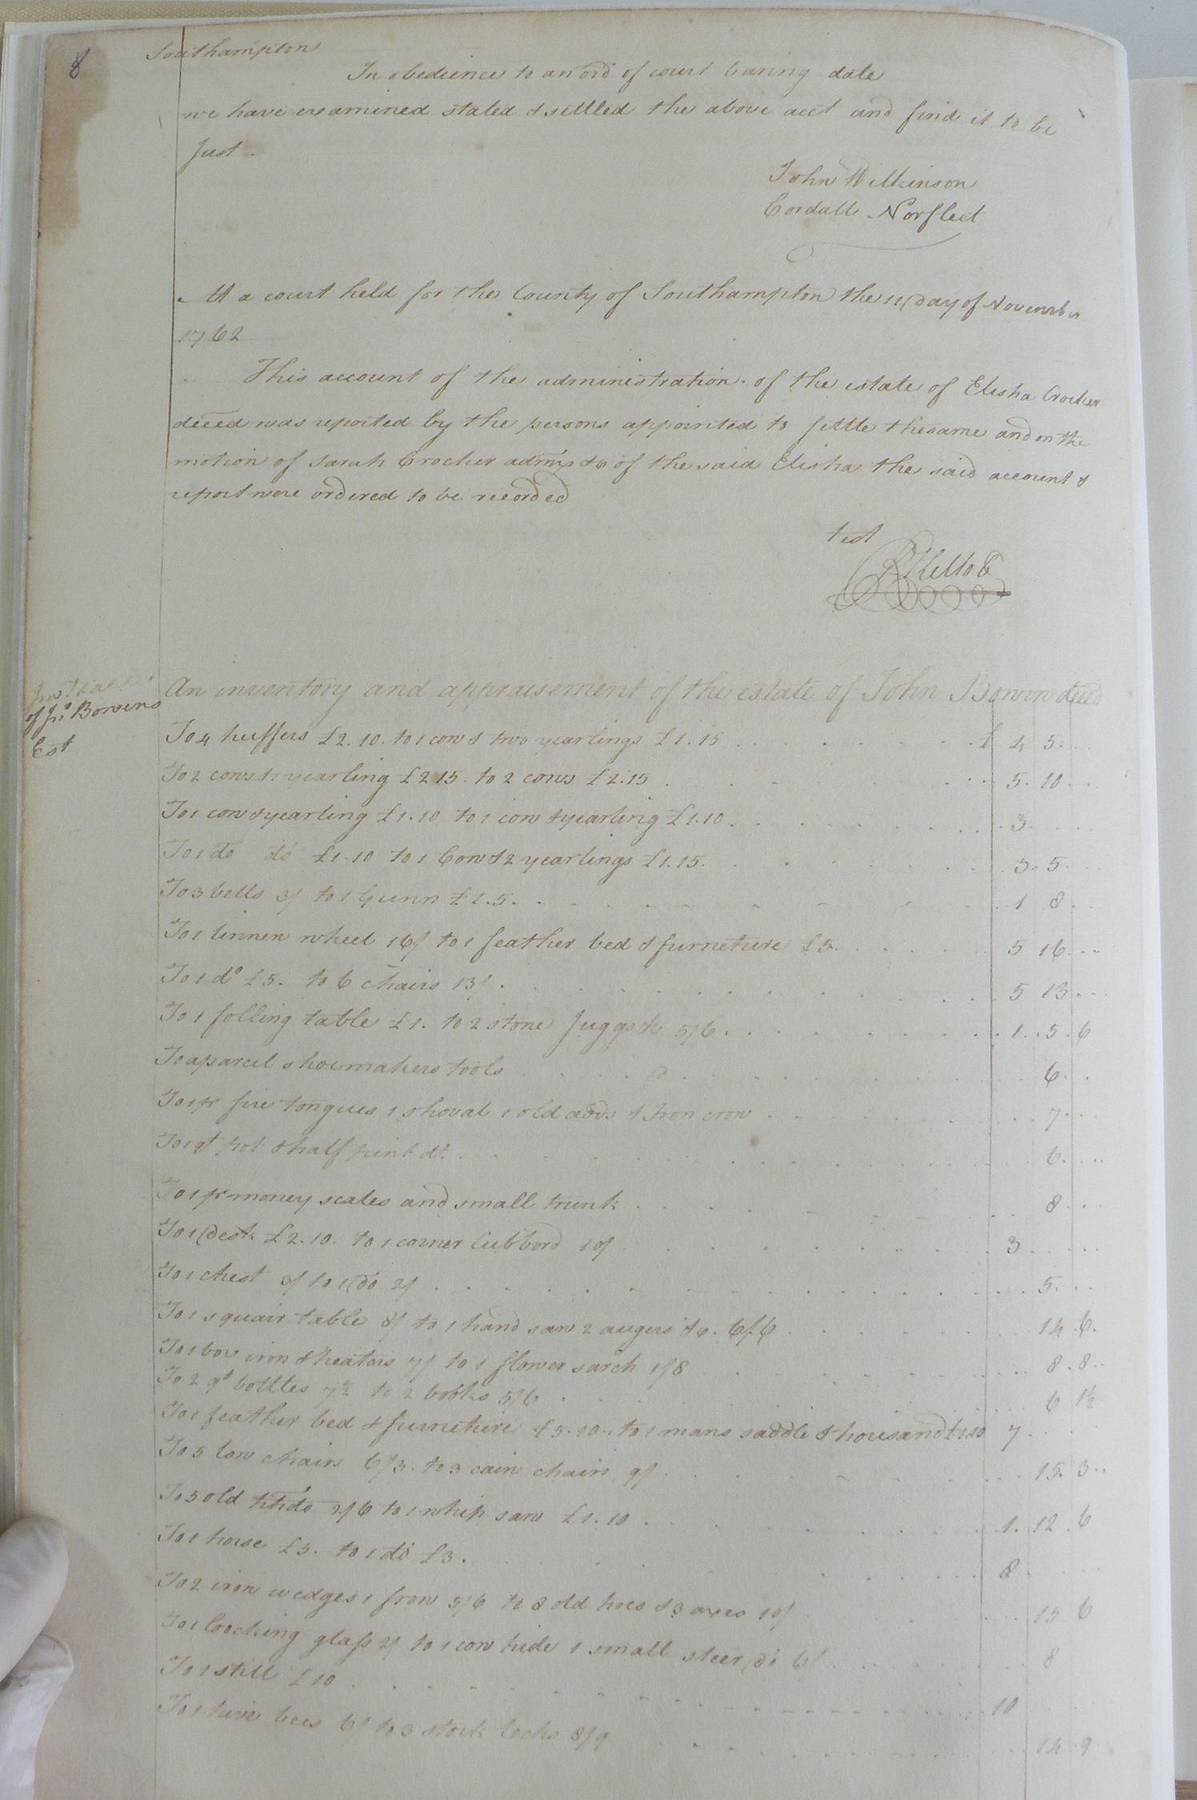 8
Southampton
In obedience to an ord of court baring date
we have examined stated & settled the above acct and find it to be
Just.
John Wilkinson
Cordall Norfleet
At a court held for the County of Southampton the 11 day of November
1762
This account of the administration of the estate of Elisha Crocker
deced was reported by the persons appointed to settle the same and on the
motion of Sarah Crocker admx &c of the said Elisha the said account &
report were ordered to be recorded
Test
of Jno Bowens
Est
An inventory and appraisement of the estate of John Bowen deced
To 4 heffers £2.10. to 1 cow & two yearlings £1.15 £ 4 5
To 2 cows & yearling £2 15 to 2 cows £2.15 5 10
To 1 cow & yearling £1.10 to 1 cow & yearling £1.10 3
To 1 do do £1.10 to 1 Cow & 2 yearlings £1.15 3 5
To 3 bells 3/ to 1 Gunn £1.5 1 8
To 1 linnen wheel 16/ to 1 feather bed & furneture £5 5 16
To 1 do £5. to 6 chairs 13/ 5 13
To 1 folling table £1. to 2 stone Juggs &c 5/6 1 5 6
To a parcel shoemakers tools 6
To 1 pr fire tongues 1 shoval 1 old adds & Iron crow 7
To 1 qt pot & half pint do 6
To 1 pr money scales and small trunk 8
To 1 Desk £2.10. to 1 corner Cubbord 10/ 3
To 1 chest 3/ to 1 do 2/ 5
To 1 squair table 8/ to 1 hand saw 2 augers &c. 6/6 14 6
To 1 box iron & heaters 7/ to 1 flower sarch 1/8 8 8
To 2 qt bottles 7½ to 2 books 5/6 6 1½
To 1 feather bed & furneture £5.10. to 1 mans saddle & housand £1.10 7
To 5 low chairs 6/3. to 3 cain chairs 9/ 15 3
To 5 old do 2/6 to 1 whip saw £1.10 1 12 6
To 1 horse £5. to 1 do £3. 8
To 2 iron wedges 1 frow 5/6 to 8 old hoes & 3 axes 10/ 15 6
To 1 Loocking glass 2/ to 1 cow hide 1 small steer do 6/ 8
To 1 still £10 10
To 1 hive bees 6/ to 3 stock locks 8/9 14 9